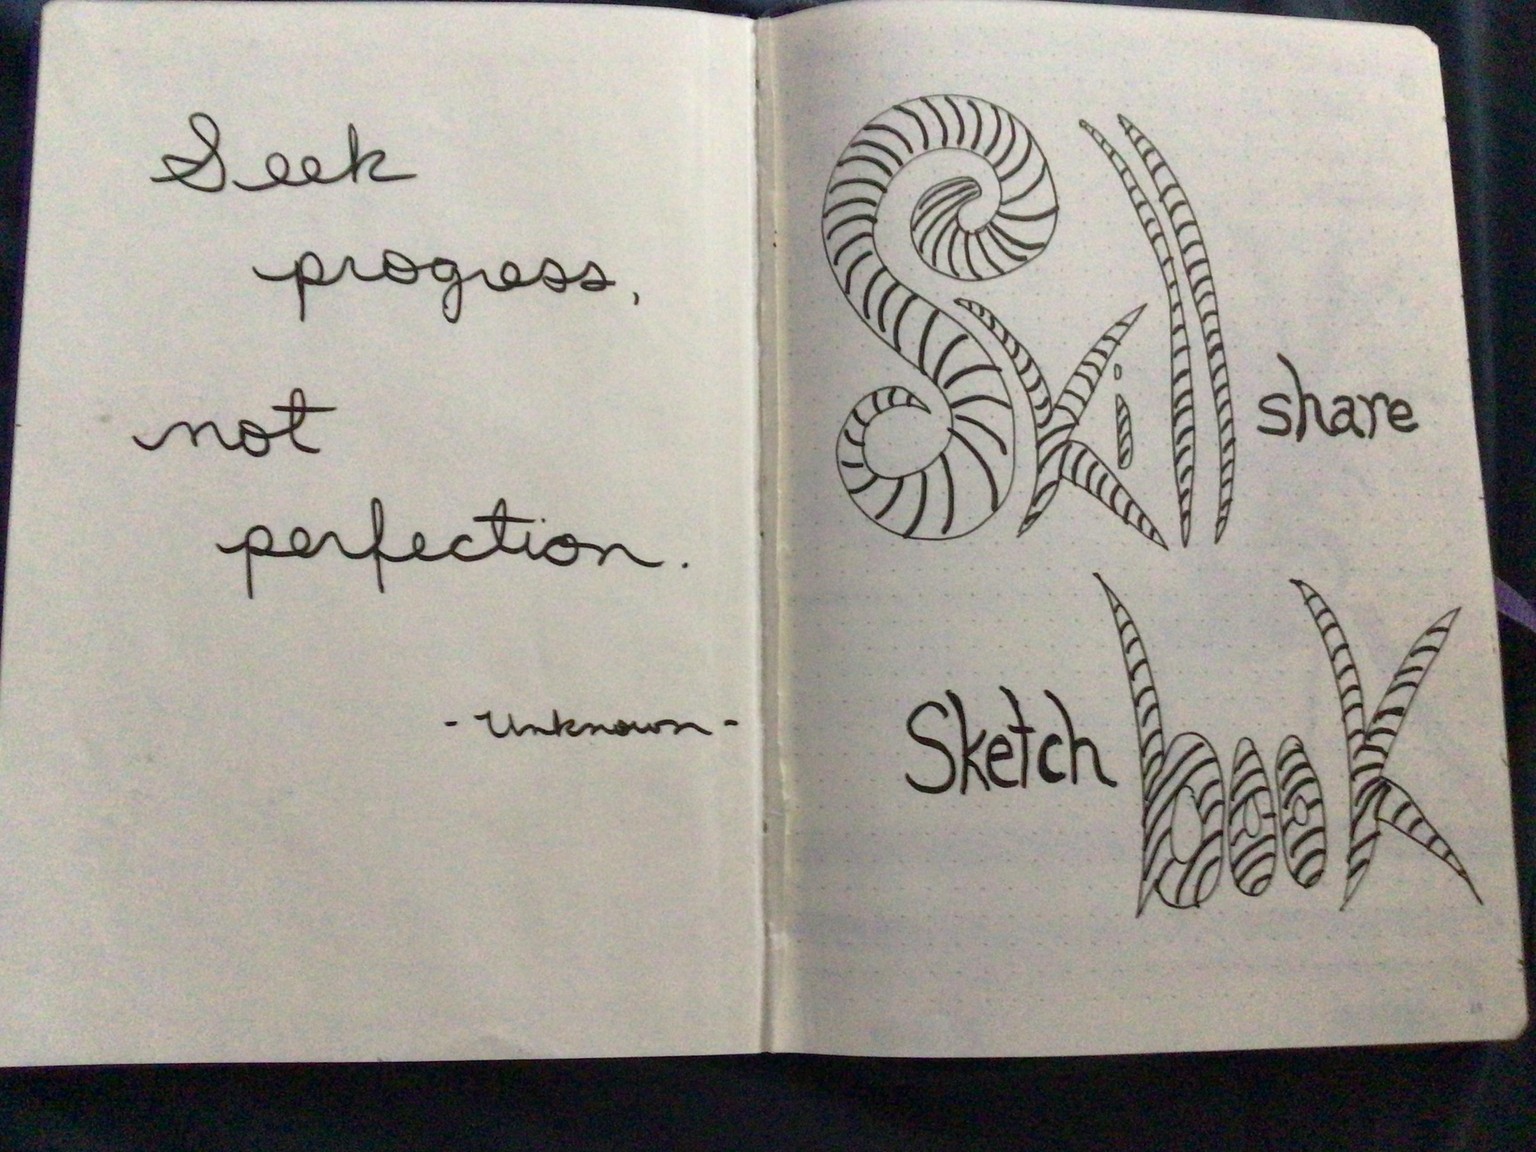 Seek
progress,
not
perfection.
- Unknown -
Skill
share
Sketch
book